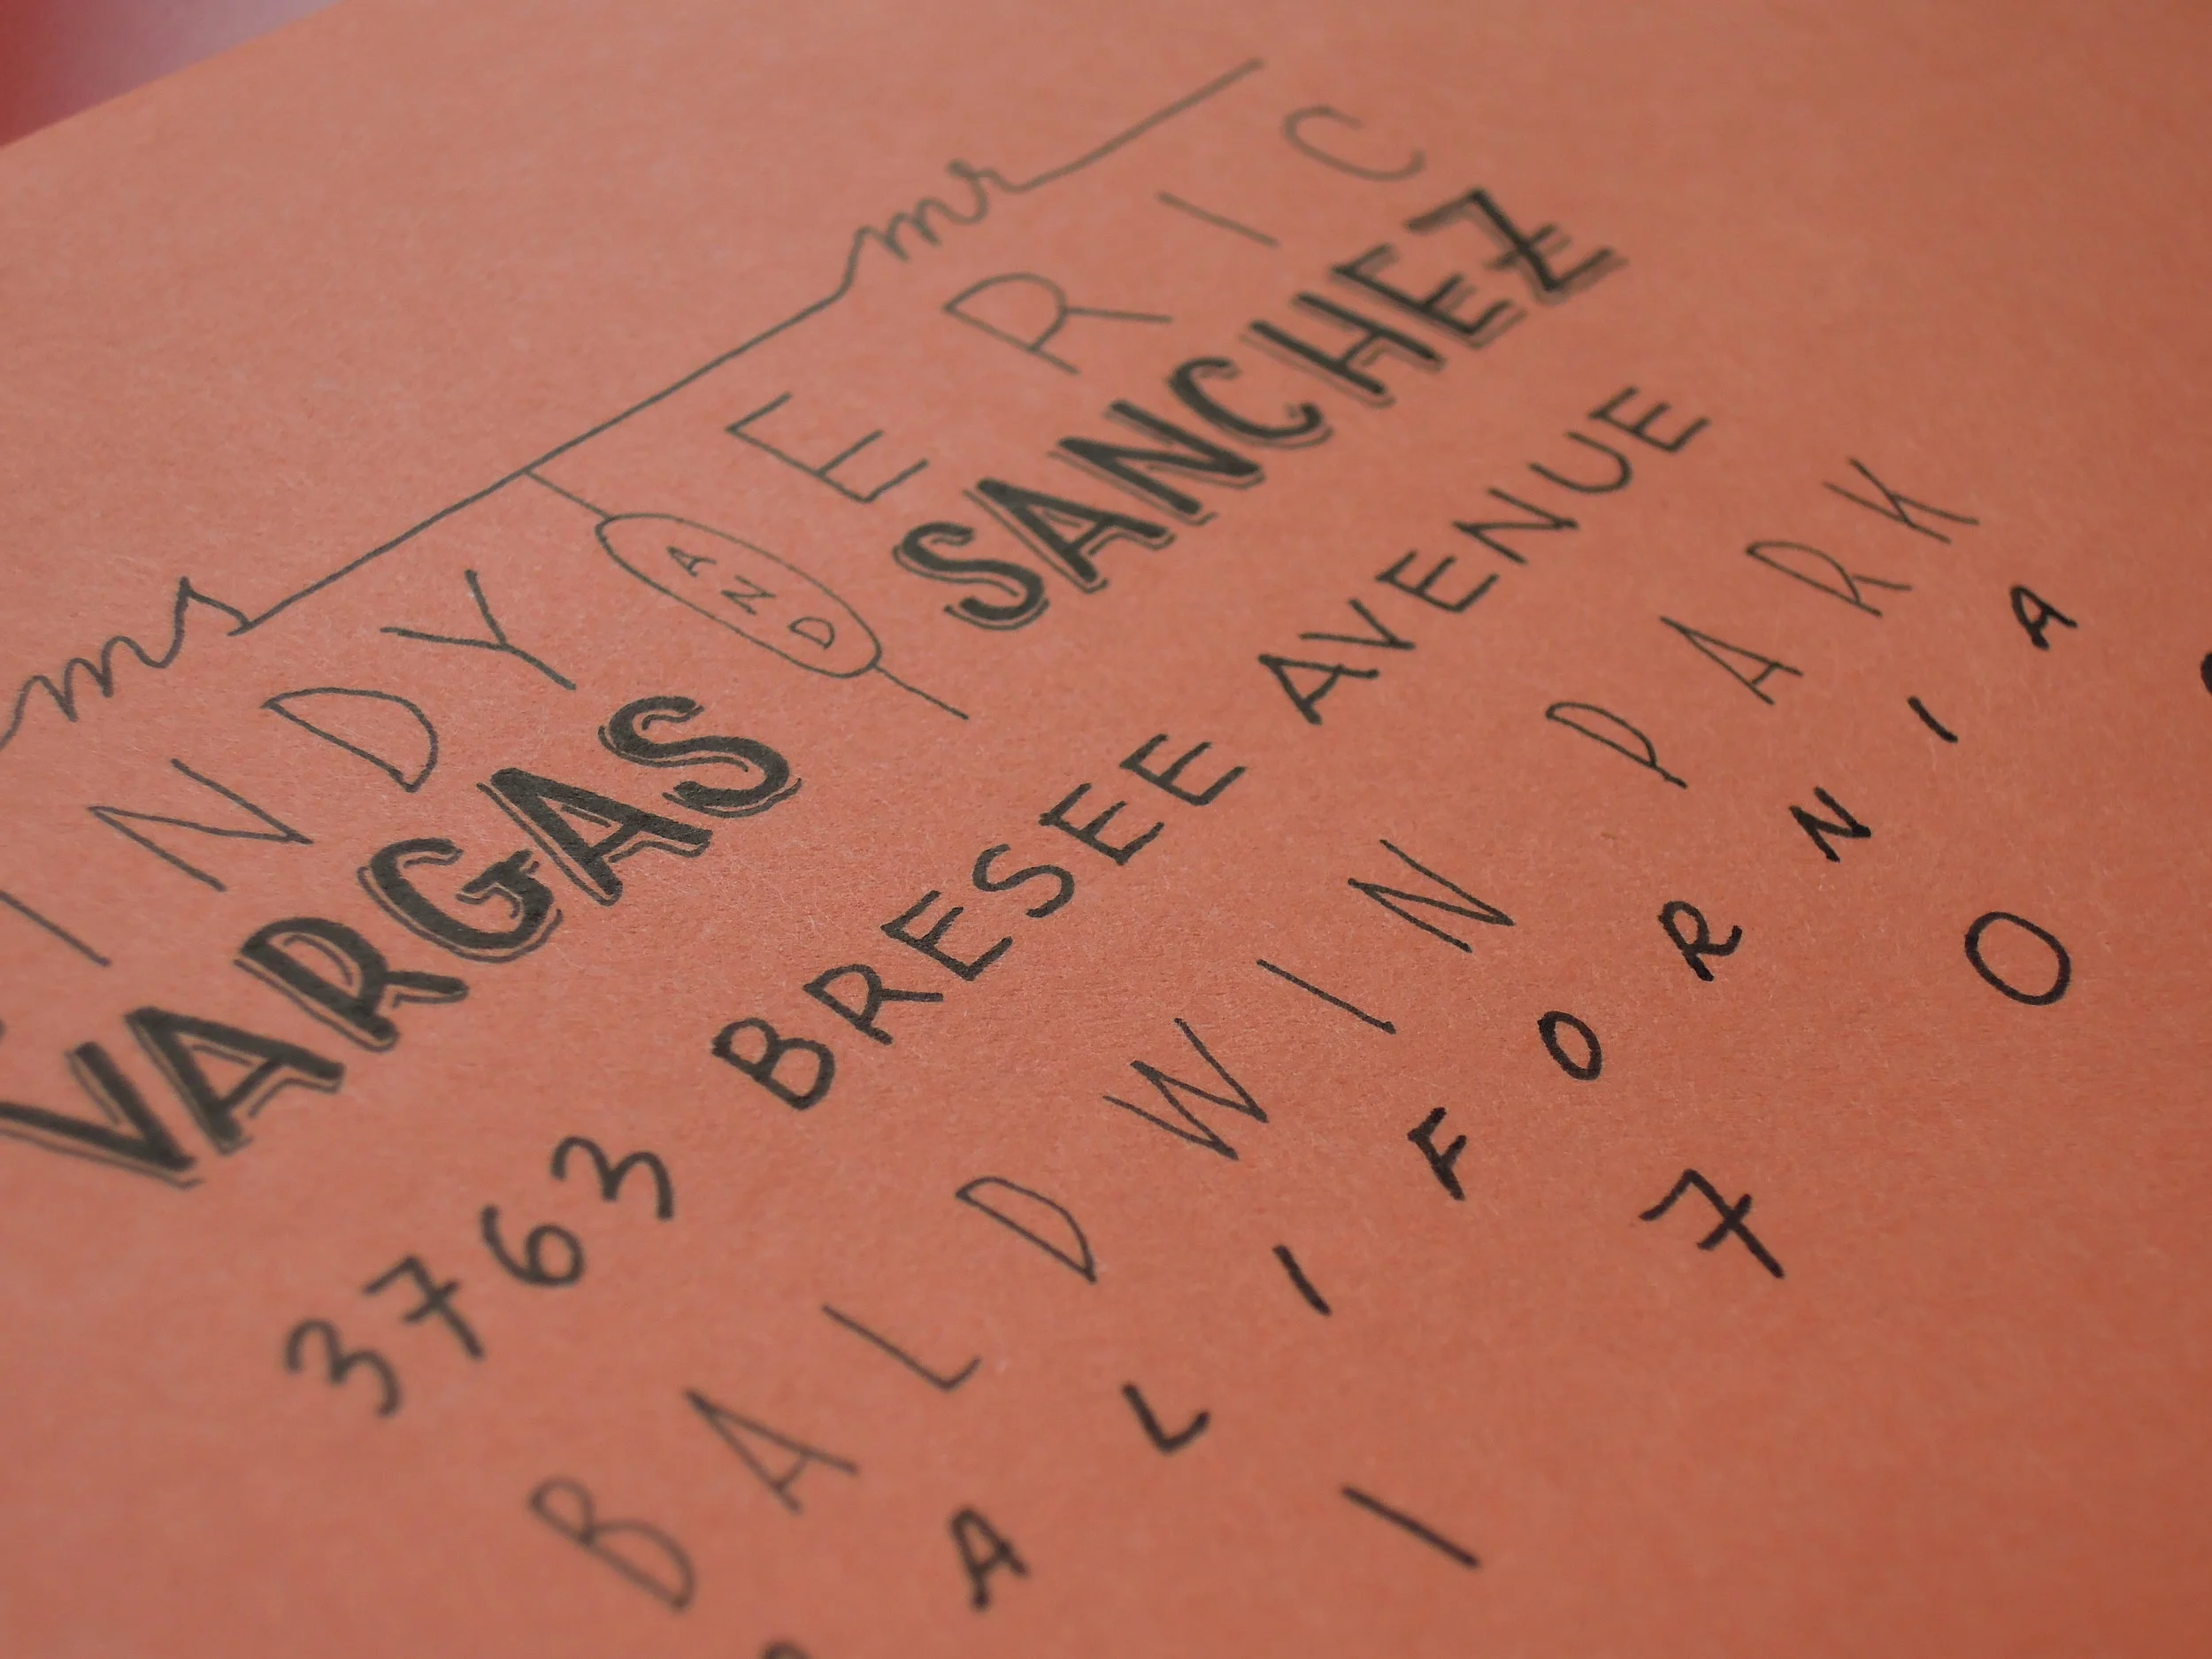 ms mr
INDY AND ERIC
VARGAS SANCHEZ
3763 BRESEE AVENUE
BALDWIN PARK
ALIFORNIA
170